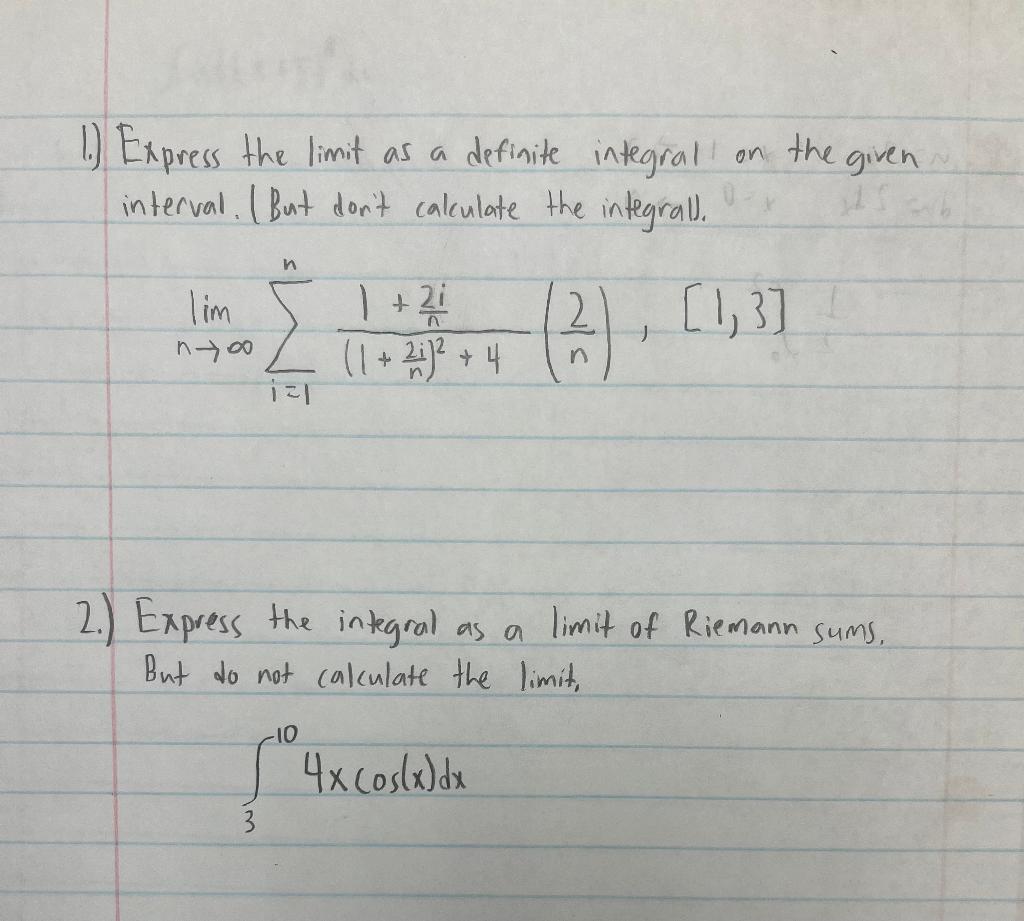 1.) Express the limit as a definite integral on the given
interval. (But don't calculate the integral).
lim n→∞ n Σ i=1 (1 + 2i/n)/((1 + 2i/n)² + 4) (2/n), [1,3]
2.) Express the integral as a limit of Riemann sums.
But do not calculate the limit.
∫₃¹⁰ 4x cos(x) dx